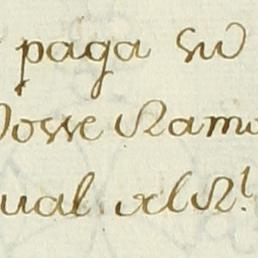 paga su
Josse Ramo
ual. al R.l